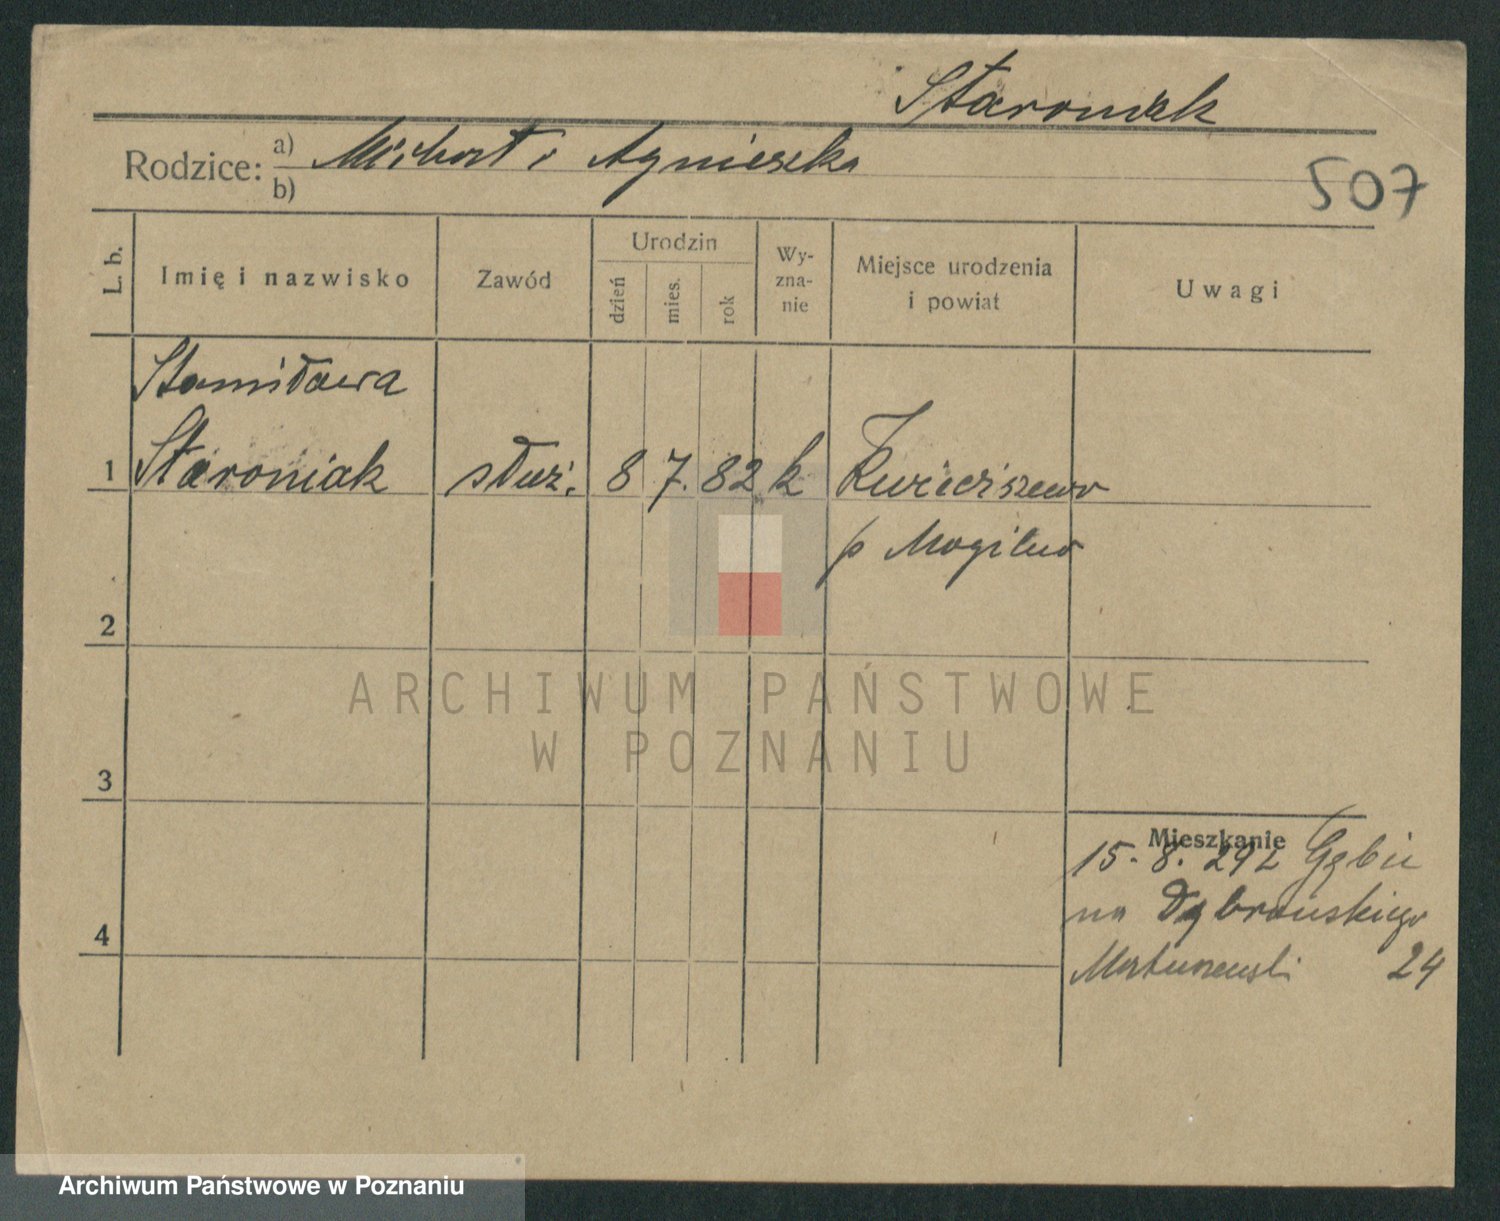 Staroniak
Rodzice: a) Michał i Agnieszka
b)
507
L. b.
Imię i nazwisko
Zawód
Urodzin
dzień
mies.
rok
Wy-
zna-
nie
Miejsce urodzenia
i powiat
Uwagi
Stanisława
1 Staroniak służ. 8 7. 82 k Kwieciszewo
p Mogilno
2
ARCHIWUM PAŃSTWOWE
W POZNANIU
3
Mieszkanie
15. 8. 29 z Gębic
na Dąbrowskiego
4
24
Archiwum Państwowe w Poznaniu